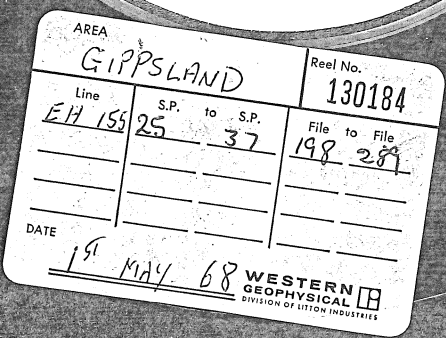 AREA
GIPPSLAND
Reel No.
130184
Line S.P. to S.P. File to File
EH 155 25 37 198 289
DATE
1ST MAY 68
WESTERN
GEOPHYSICAL
DIVISION OF LITTON INDUSTRIES